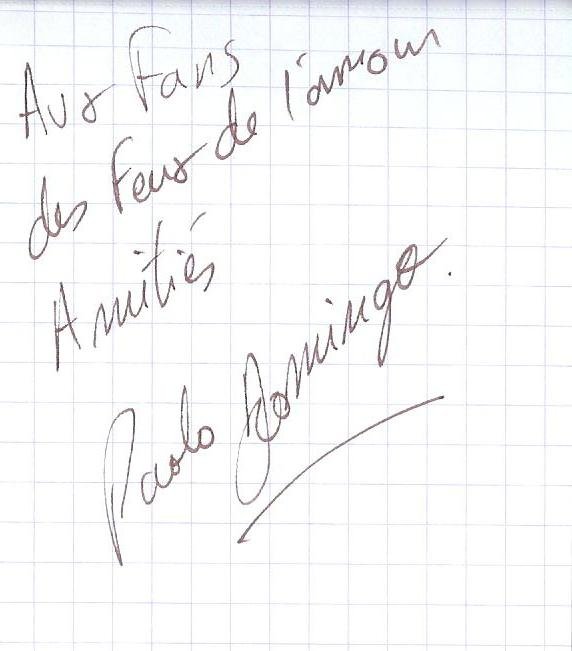 Aux Fans
des Feux de l'amour
Amitiés
Paolo Domingo.